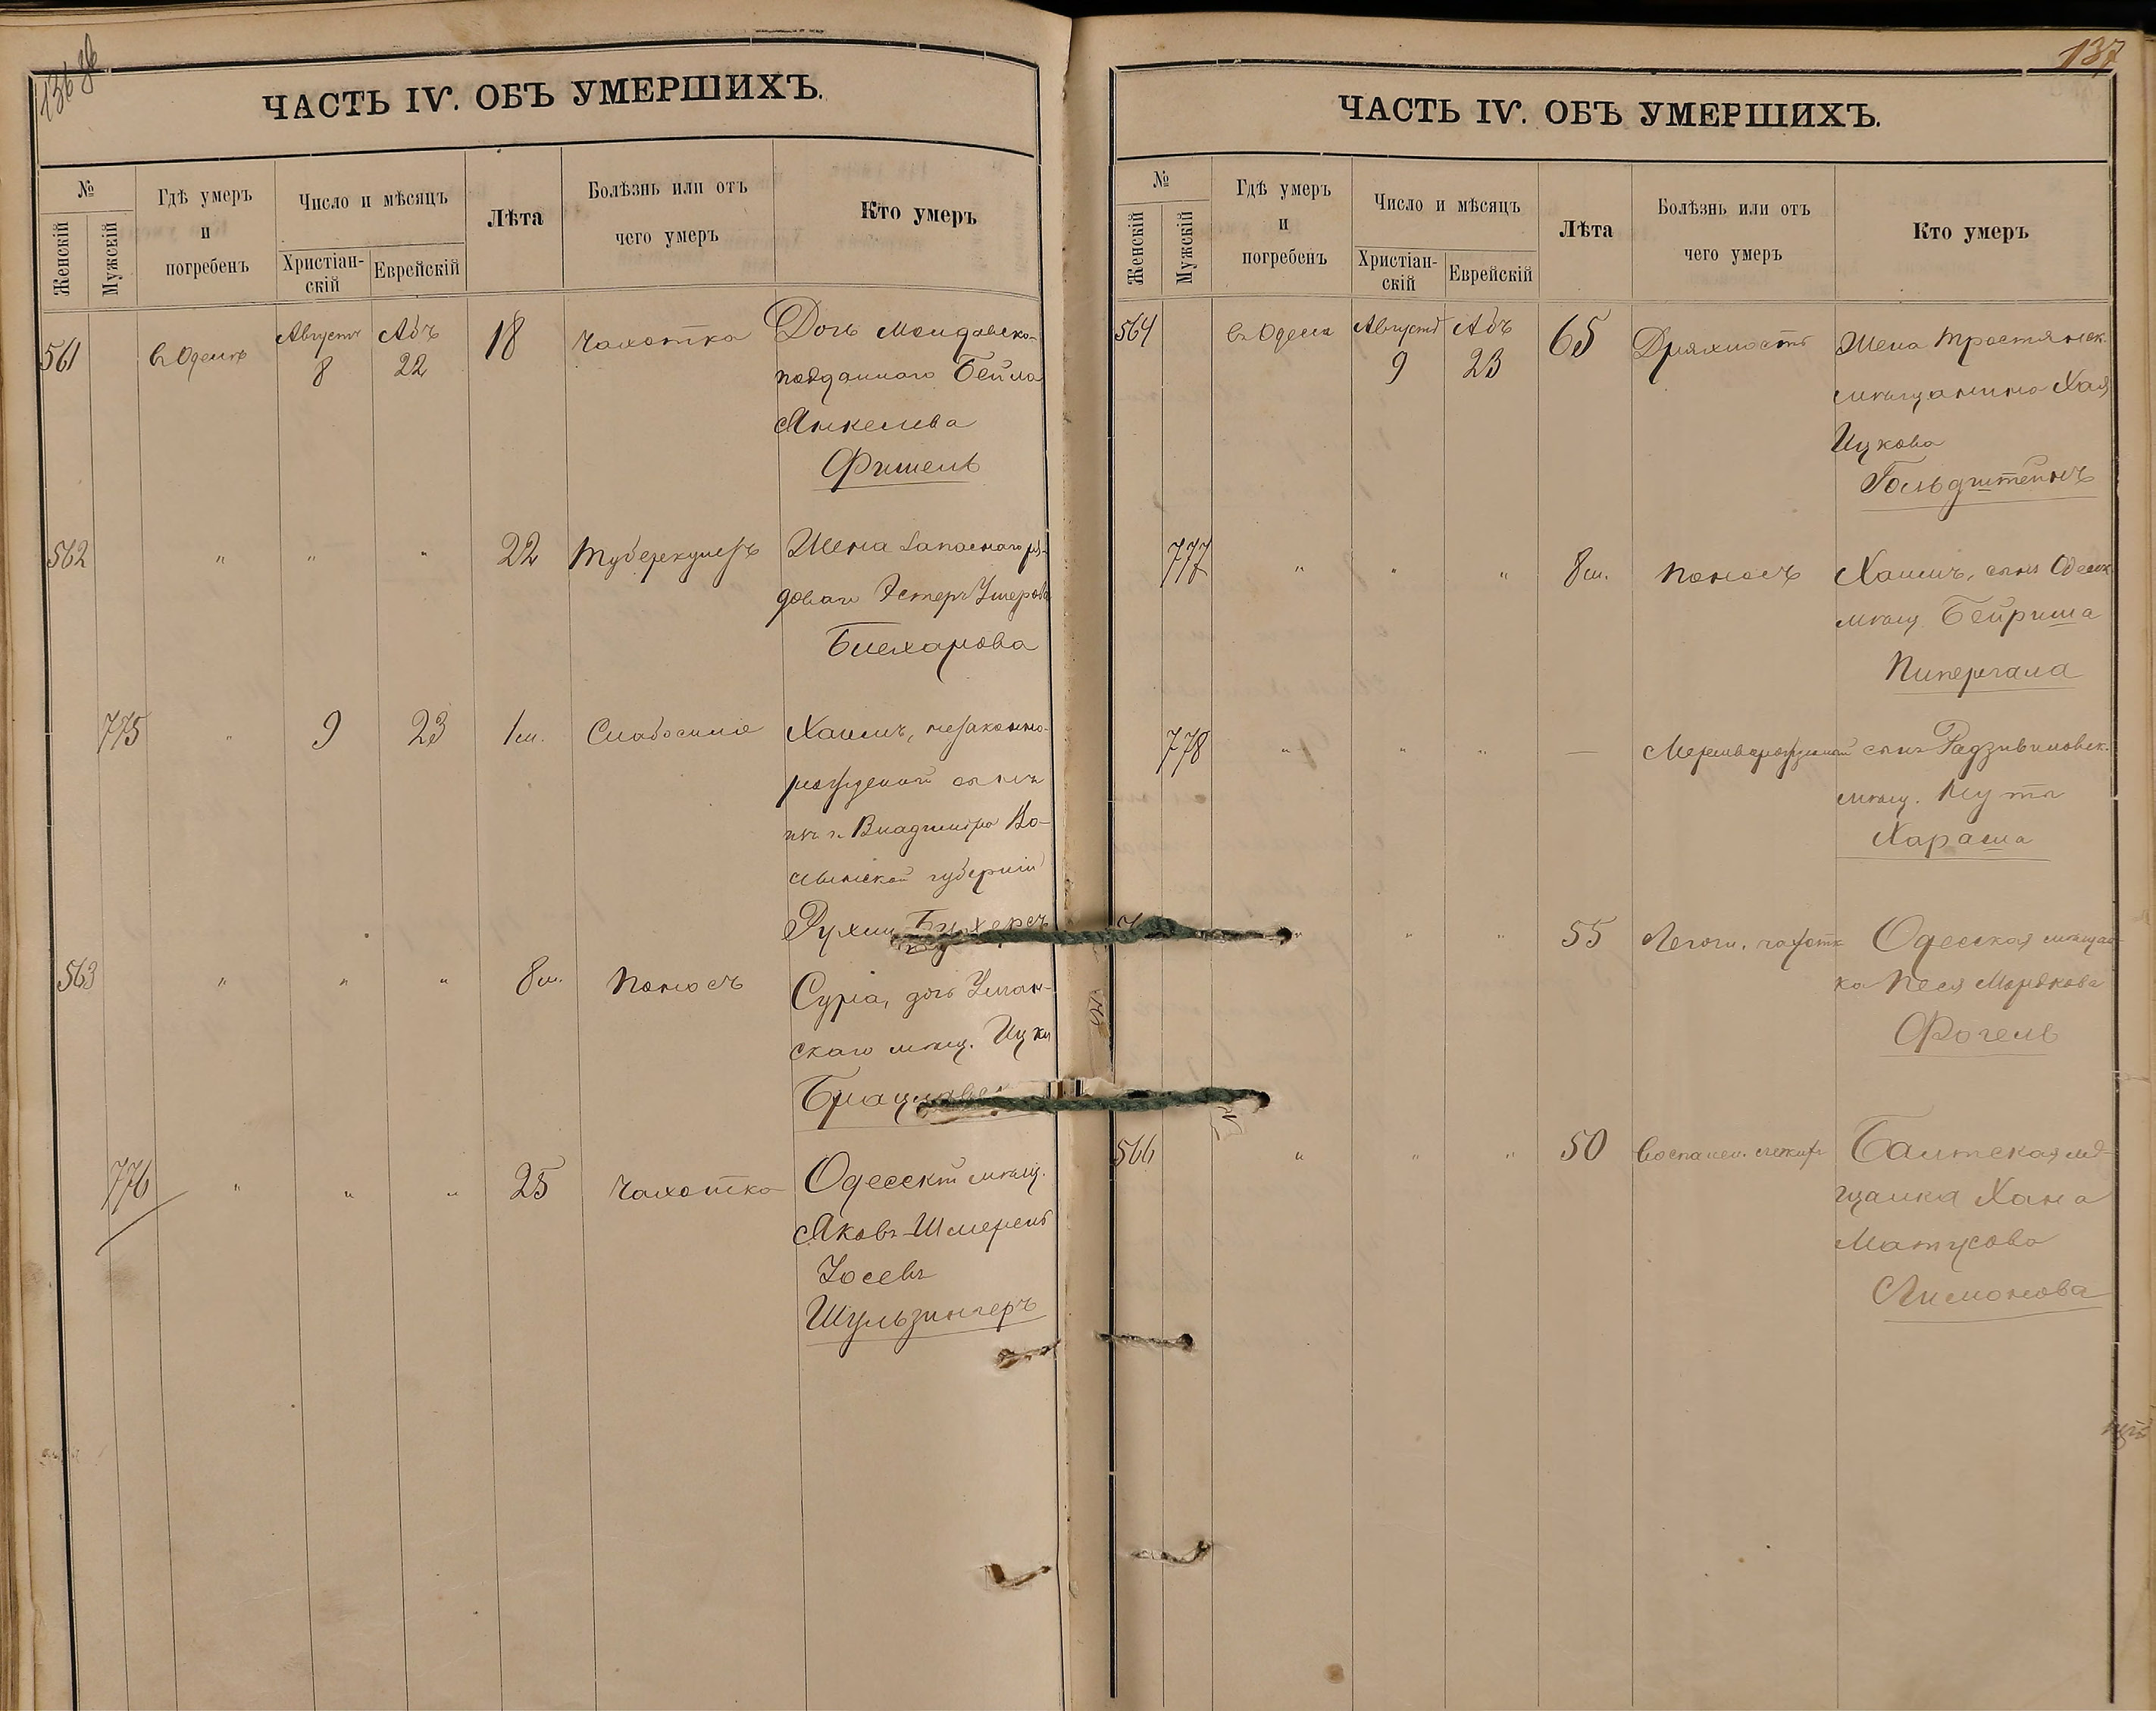 136 об
ЧАСТЬ IV. ОБЪ УМЕРШИХЪ.
№
Женскій
Мужскій
Гдѣ умеръ
и
погребенъ
Число и мѣсяцъ
Христіан-
скій
Еврейскій
Лѣта
Болѣзнь или отъ
чего умеръ
Кто умеръ
561
в Одессѣ
Августъ
8
Абъ
22
18
Чахотка
Дочь Молдавско-
подданного Бейла
Янкелева
Фишель
562
"
"
"
22
Туберкулезъ
Жена запаснаго ря-
доваго Эстеръ Ушерова
Блехарова
775
"
9
23
1 м.
Слабосиліе
Хаимъ, незаконно-
рожденный сынъ
Владиміра Во-
лынской губерніи
Рухли Бухеръ
563
"
"
"
8 м.
Поносъ
Сура, дочь Уман-
скаго мѣщ. Ицки
776
"
"
"
25
Чахотка
Одесскій мѣщ.
Яковъ-Шмерель
Іосевъ
Шульзингеръ
137
ЧАСТЬ IV. ОБЪ УМЕРШИХЪ.
№
Женскій
Мужскій
Гдѣ умеръ
и
погребенъ
Число и мѣсяцъ
Христіан-
скій
Еврейскій
Лѣта
Болѣзнь или отъ
чего умеръ
Кто умеръ
564
въ Одессѣ
Августъ
9
Абъ
23
65
Дряхлость
Жена Тростянск.
мѣщанина Хая
Ицкова
Гольдштейнъ
777
"
"
"
8 м.
Поносъ
Хаимъ, сынъ Одесск
мѣщ. Бейриша
Пипергала
778
"
"
"
—
Мертворожденный
сынъ Радзивиловск.
мѣщ. Мутя
Хараша
"
"
"
55
Легочн. чахотк
Одесская мѣщан-
ка Песя Мордкова
Фогель
566
"
"
"
50
Воспален. легкихъ
Балтская мѣ-
щанка Хана
Матусова
Лимонова